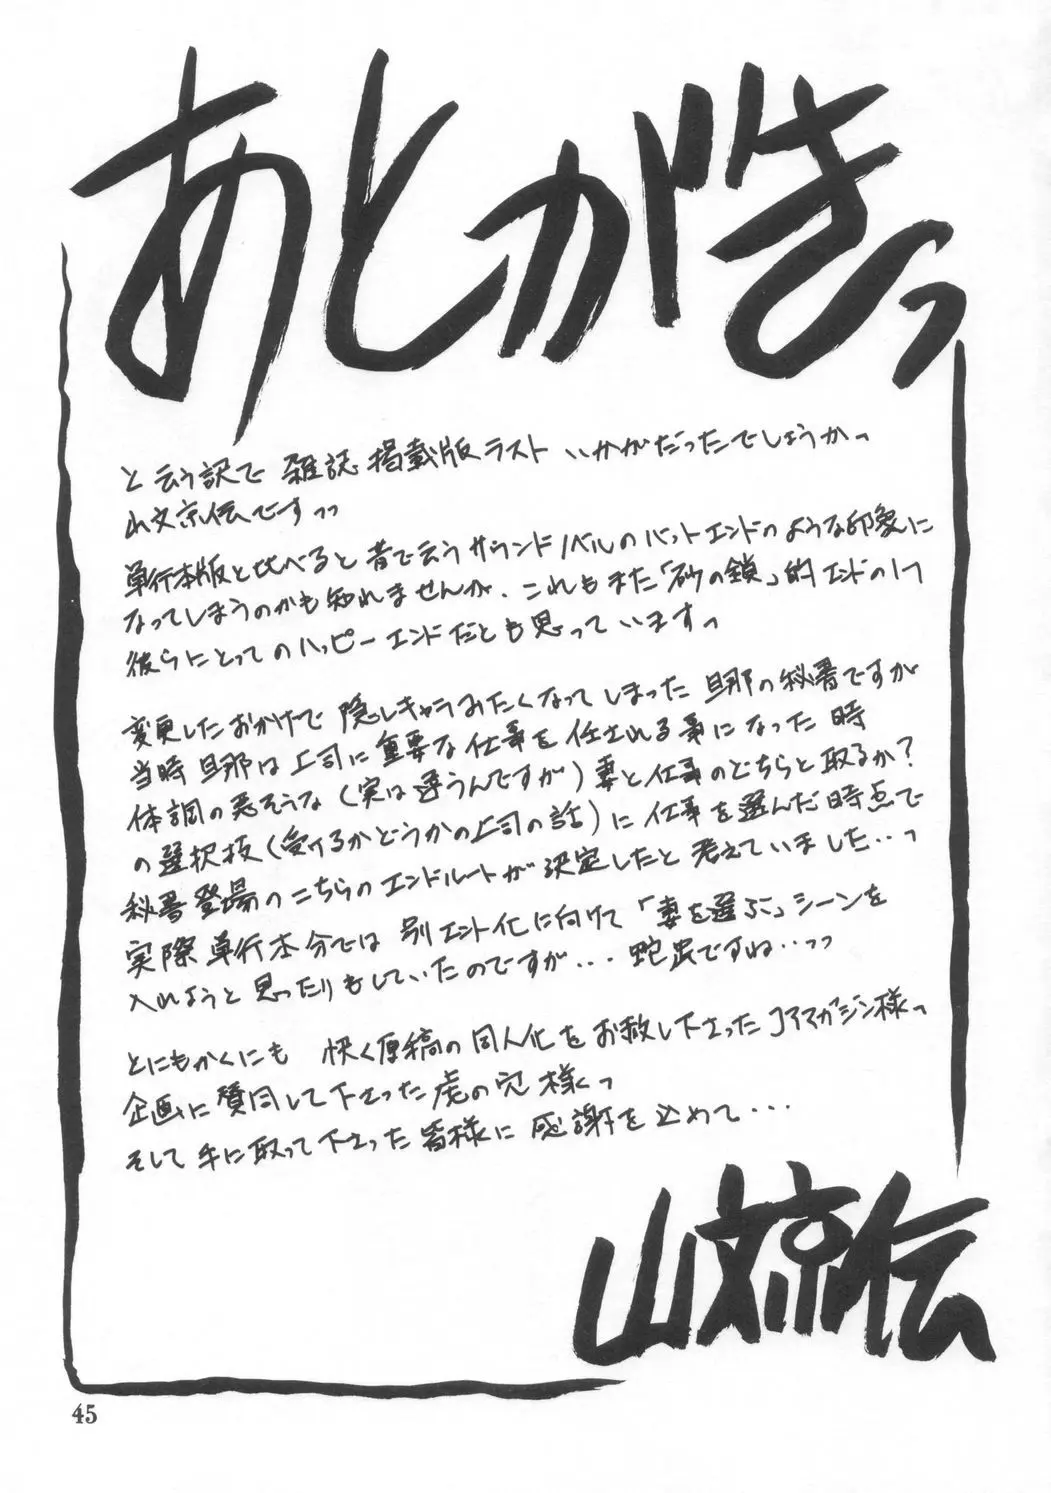 あとがきっ
と云う訳で 雑誌掲載版ラスト いかがだったでしょうかっ
山文京伝ですっっ
単行本版と比べると昔で云うサウンドノベルのバットエンドのような印象に
なってしまうのかも知れませんが、これもまた「砂の鎖」的エンドの1つ
彼らにとってのハッピーエンドだとも思っていますっ
変更したおかげで 隠しキャラみたくなってしまった 旦那の秘書ですが
当時旦那は上司に重要な仕事を任される事になった時
体調の悪そうな(実は違うんですが)妻と仕事のどちらと取るか?
の選択技(受けるかどうかの上司の話)に仕事を選んだ時点で
秘書登場のこちらのエンドルートが決定したと考えていました...っ
実際単行本分では 別エンド化に向けて「妻を選ぶ」シーンを
入れようと思ったりもしていたのですが... 蛇足ですね...っっ
とにもかくにも 快く原稿の同人化をお赦し下さったコアマガジン様っ
企画に賛同して下さった虎の穴様っ
そして手に取って下さった皆様に 感謝を込めて...
山文京伝
45